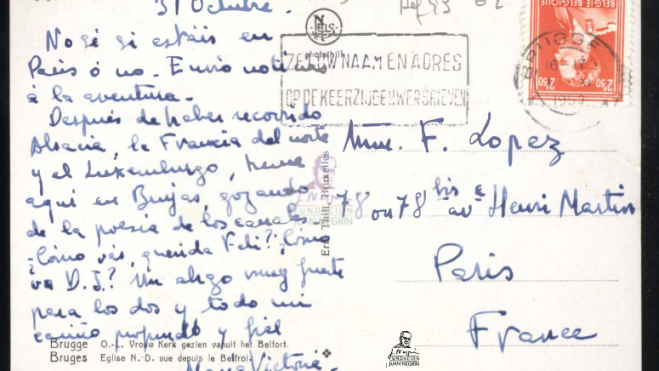 31 Octubre.
No sé si estáis en
París ó no. Envío noticias
à la aventura.
Después de haber recorrido
Alsacia, la Francia del norte
y el Luxemburgo, heme
aquí en Brujas, gozando
de la poesía de los canales.
¿Cómo vas, querida Feli? ¿Cómo
va D.J.? Un abrazo muy fuerte
para los dos y todo mi
cariño profundo y fiel
Brugge O.-L. Vrouw Kerk gezien vanuit het Belfort.
Bruges Eglise N.-D. vue depuis le Beffroi.
Maria Victoria.
Ern. Thill, Bruxelles
FUNDACIÓN
JUAN NEGRÍN
ZET UW NAAM EN ADRES
OP DE KEERZIJDE UWER BRIEVEN
BRUGGE
BELGIE-BELGIQUE
2F50
Mme. F. Lopez
78 ou 78 bis av e Henri Martin
Paris
France
FUNDACIÓN
JUAN NEGRÍN